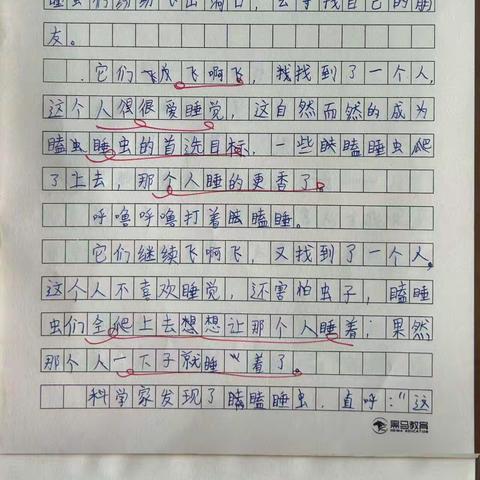 睡虫们纷纷飞出洞口，去寻找自己的朋
友。
它们飞啊飞，找找到了一个人，
这个人很很爱睡觉，这自然而然的成为
瞌虫睡虫的首选目标，一些瞌瞌睡虫爬
了上去，那个人睡的更香了。
呼噜呼噜打着瞌瞌睡。
它们继续飞啊飞，又找到了一个人。
这个人不喜欢睡觉，还害怕虫子，瞌睡
虫们全爬上去想想让那个人睡着；果然
那个人一下子就睡着了。
科学家发现了瞌瞌睡虫，直呼：“这
黑马教育